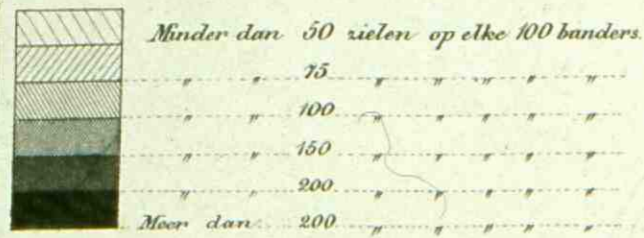 Minder dan 50 zielen op elke 100 banders.
" " 75 " " " " "
" " 100 " " " " "
" " 150 " " " " "
" " 200 " " " " "
Meer dan 200 " " " " "